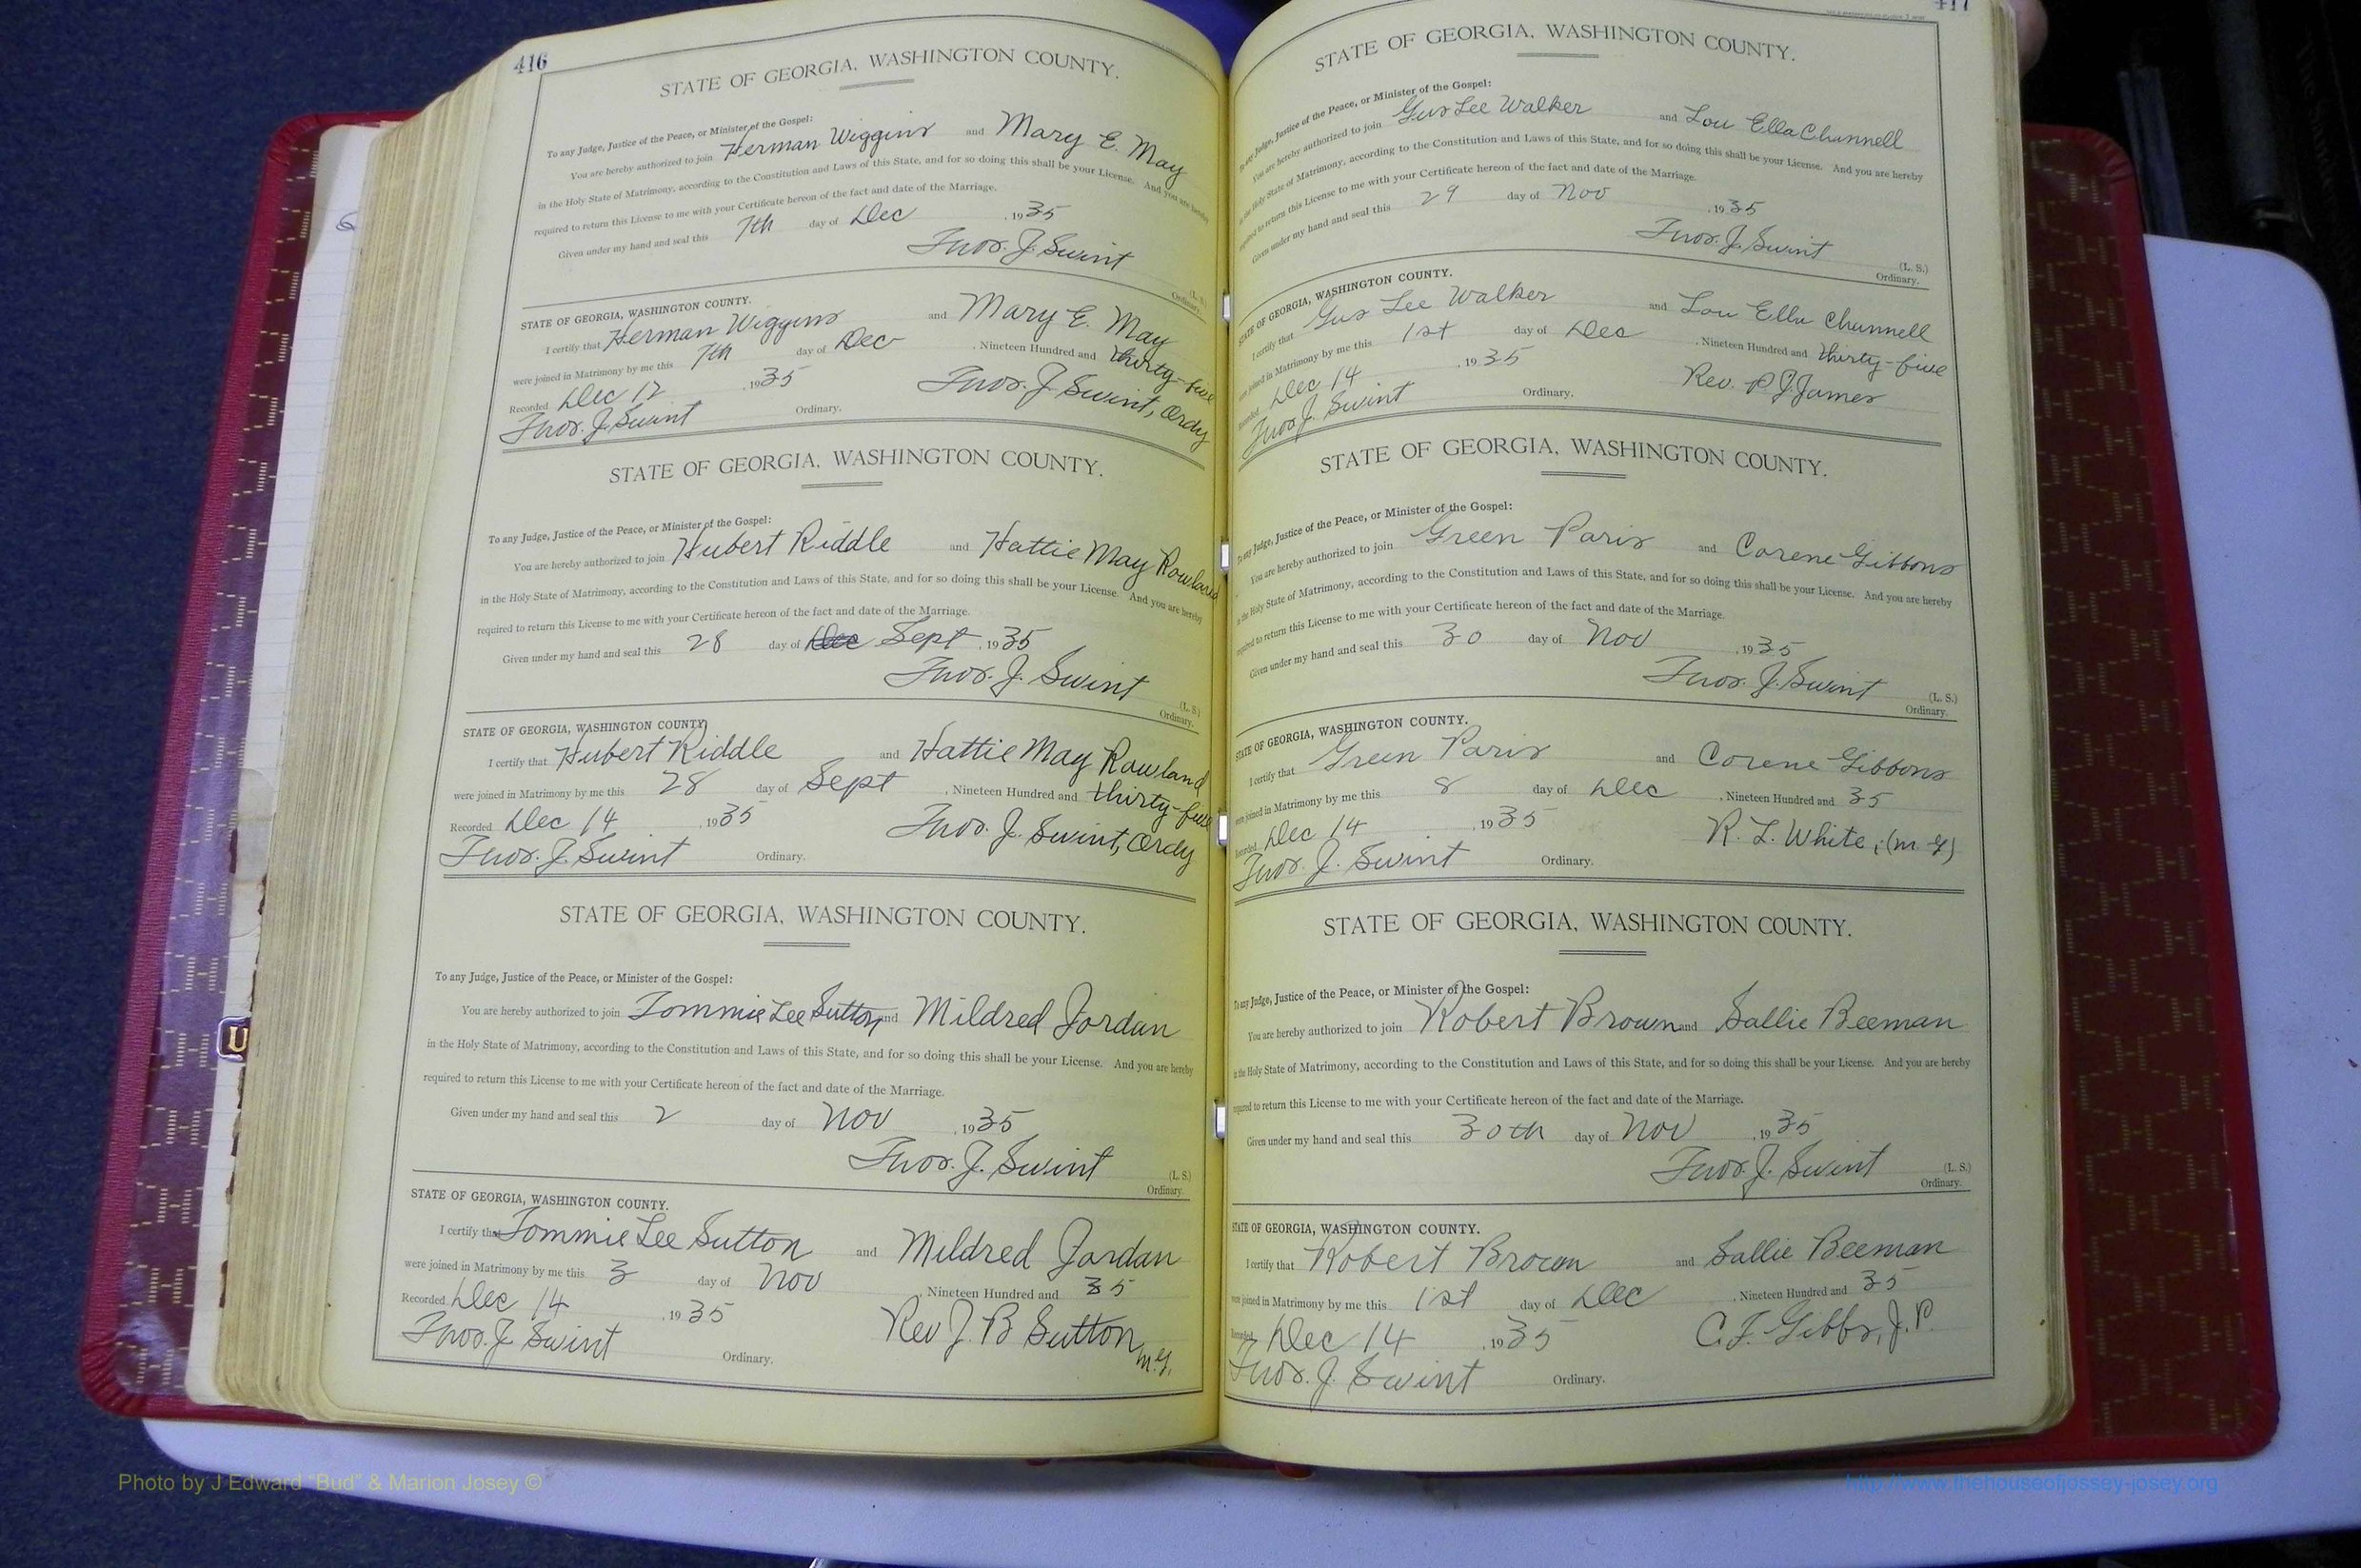 416
STATE OF GEORGIA, WASHINGTON COUNTY.
To any Judge, Justice of the Peace, or Minister of the Gospel:
You are hereby authorized to join Herman Wiggins and Mary E. May
in the Holy State of Matrimony, according to the Constitution and Laws of this State, and for so doing this shall be your License. And you are hereby
required to return this License to me with your Certificate hereon of the fact and date of the Marriage.
Given under my hand and seal this 7th day of Dec , 1935
Thos. J. Swint
(L. S.)
Ordinary.
STATE OF GEORGIA, WASHINGTON COUNTY.
I certify that Herman Wiggins and Mary E. May
were joined in Matrimony by me this 7th day of Dec , Nineteen Hundred and thirty-five
Recorded Dec 12 , 1935 Thos. J. Swint, Ordy
Thos. J. Swint Ordinary.
STATE OF GEORGIA, WASHINGTON COUNTY.
To any Judge, Justice of the Peace, or Minister of the Gospel:
You are hereby authorized to join Hubert Riddle and Hattie May Rowland
in the Holy State of Matrimony, according to the Constitution and Laws of this State, and for so doing this shall be your License. And you are hereby
required to return this License to me with your Certificate hereon of the fact and date of the Marriage.
Given under my hand and seal this 28 day of Dec Sept , 1935
Thos. J. Swint
(L. S.)
Ordinary.
STATE OF GEORGIA, WASHINGTON COUNTY
I certify that Hubert Riddle and Hattie May Rowland
were joined in Matrimony by me this 28 day of Sept , Nineteen Hundred and thirty-five
Recorded Dec 14 , 1935 Thos. J. Swint, Ordy
Thos. J. Swint Ordinary.
STATE OF GEORGIA, WASHINGTON COUNTY.
To any Judge, Justice of the Peace, or Minister of the Gospel:
You are hereby authorized to join Tommie Lee Sutton and Mildred Jordan
in the Holy State of Matrimony, according to the Constitution and Laws of this State, and for so doing this shall be your License. And you are hereby
required to return this License to me with your Certificate hereon of the fact and date of the Marriage.
Given under my hand and seal this 2 day of Nov , 1935
Thos. J. Swint
(L. S.)
Ordinary.
STATE OF GEORGIA, WASHINGTON COUNTY.
I certify that Tommie Lee Sutton and Mildred Jordan
were joined in Matrimony by me this 3 day of Nov , Nineteen Hundred and 35
Recorded Dec 14 , 1935 Rev J. B Sutton, M.G.
Thos. J. Swint Ordinary.
417
STATE OF GEORGIA, WASHINGTON COUNTY.
To any Judge, Justice of the Peace, or Minister of the Gospel:
You are hereby authorized to join Gus Lee Walker and Lou Ella Chunnell
in the Holy State of Matrimony, according to the Constitution and Laws of this State, and for so doing this shall be your License. And you are hereby
required to return this License to me with your Certificate hereon of the fact and date of the Marriage.
Given under my hand and seal this 29 day of Nov , 1935
Thos. J. Swint
(L. S.)
Ordinary.
STATE OF GEORGIA, WASHINGTON COUNTY.
I certify that Gus Lee Walker and Lou Ella Chunnell
were joined in Matrimony by me this 1st day of Dec , Nineteen Hundred and thirty-five
Recorded Dec 14 , 1935 Rev. P J James
Thos. J. Swint Ordinary.
STATE OF GEORGIA, WASHINGTON COUNTY.
To any Judge, Justice of the Peace, or Minister of the Gospel:
You are hereby authorized to join Green Paris and Corene Gibbons
in the Holy State of Matrimony, according to the Constitution and Laws of this State, and for so doing this shall be your License. And you are hereby
required to return this License to me with your Certificate hereon of the fact and date of the Marriage.
Given under my hand and seal this 30 day of Nov , 1935
Thos. J. Swint
(L. S.)
Ordinary.
STATE OF GEORGIA, WASHINGTON COUNTY.
I certify that Green Paris and Corene Gibbons
were joined in Matrimony by me this 8 day of Dec , Nineteen Hundred and 35
Recorded Dec 14 , 1935 R. L. White, (M. G)
Thos. J. Swint Ordinary.
STATE OF GEORGIA, WASHINGTON COUNTY.
To any Judge, Justice of the Peace, or Minister of the Gospel:
You are hereby authorized to join Robert Brown and Sallie Beeman
in the Holy State of Matrimony, according to the Constitution and Laws of this State, and for so doing this shall be your License. And you are hereby
required to return this License to me with your Certificate hereon of the fact and date of the Marriage.
Given under my hand and seal this 30th day of Nov , 1935
Thos. J. Swint
(L. S.)
Ordinary.
STATE OF GEORGIA, WASHINGTON COUNTY.
I certify that Robert Brown and Sallie Beeman
were joined in Matrimony by me this 1st day of Dec , Nineteen Hundred and 35
Recorded Dec 14 , 1935 C. F. Gibbs, J. P.
Thos. J. Swint Ordinary.
U
Photo by J Edward "Bud" & Marion Josey ©
http://www.thehouseofjossey-josey.org